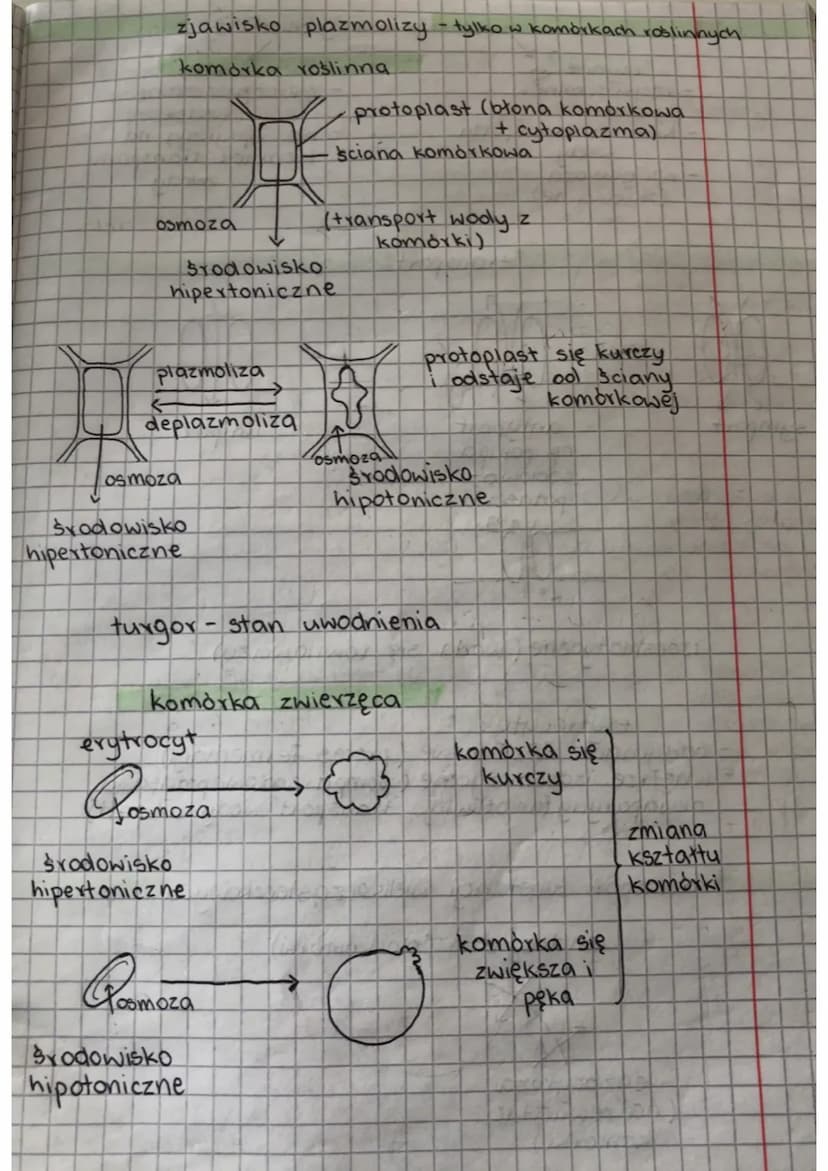 zjawisko plazmolizy - tylko w komórkach roślinnych
komórka roślinna
protoplast (błona komórkowa
+ cytoplazma)
ściana komórkowa
osmoza
(transport wody z
komórki)
środowisko
hipertoniczne
plazmoliza
deplazmoliza
protoplast się kurczy
i odstaje od ściany
komórkowej
osmoza
środowisko
hipertoniczne
osmoza
środowisko
hipotoniczne
turgor - stan uwodnienia
komórka zwierzęca
erytrocyt
osmoza
środowisko
hipertoniczne
komórka się
kurczy
zmiana
kształtu
komórki
osmoza
środowisko
hipotoniczne
komórka się
zwiększa i
pęka